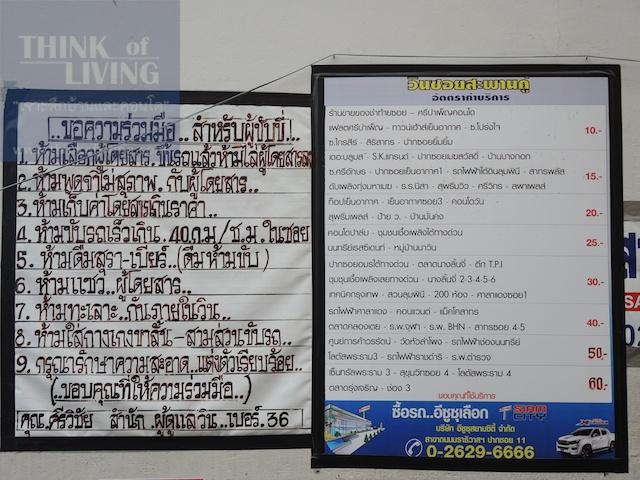 THINK of
LIVING
"เจาะลึกบ้านและคอนโด"
..ขอความร่วมมือ.. สำหรับผู้ขับขี่!..
1. ห้ามเลือกผู้โดยสาร. ขึ้นรถแล้วห้ามไล่ผู้โดยสารลง
2. ห้ามพูดจาไม่สุภาพ. กับผู้โดยสาร..
3. ห้ามเก็บค่าโดยสารเกินราคา..
4. ห้ามขับรถเร็วเกิน. 40 ก.ม/ช.ม. ในซอย
5. ห้ามดื่มสุรา-เบียร์..(ดื่มห้ามขับ)
6. ห้ามแซว..ผู้โดยสาร..
7. ห้ามทะเลาะ..กันภายในวิน..
8. ห้ามใส่กางเกงขาสั้น-สามส่วนขับรถ..
9. กรุณารักษาความสะอาด..แต่งตัวเรียบร้อย..
(..ขอบคุณที่ให้ความร่วมมือ..)
คุณ. ศรีวิชัย สำนัก. ผู้ดูแลวิน..เบอร์. 36
วินซอยสะพานคู่
อัตราค่าบริการ
ร้านขายของชำท้ายซอย - ศรีบำเพ็ญคอนโด
แฟลตศรีบำเพ็ญ - ทาวน์เฮ้าส์เย็นอากาศ - ซ.โปร่งใจ 10.-
ซ.ไกรสีร์ - สิริสาทร - ปากซอยยิ้มยิ้ม
เดอะบลูม - S.K.แกรนด์ - ปากซอยเมขสวัสดิ์ - บ้านบางกอก
ซ.ศรีอักษร - ปากซอยเย็นอากาศ1 - รถไฟฟ้าใต้ดินลุมพินี - สาทรพลัส 15.-
ดับเพลิงทุ่งมหาเมฆ - ร.ร.นิสา - สุพรีมวิว - ศรีวิกร - ลพาเพลส
ท็อปเย็นอากาศ - เย็นอากาศซอย3 - คอนโดวัน 20.-
สุพรีมเพลส - ป้าย ว. - บ้านมั่นคง
คอนโดปาล์ม - ชุมชนเชื้อเพลิงใต้ทางด่วน 25.-
นนทรีย์เรสซิเดนท์ - หมู่บ้านนาวิน
ปากซอยอมรใต้ทางด่วน - ตลาดนางลิ้นจี่ - ตึก T.P.I
ชุมชุนเชื้อเพลิงเลยทางด่วน - นางลิ้นจี่ 2-3-4-5-6 30.-
เทคนิคกรุงเทพ - สวนลุมพินี - 200 ห้อง - ศาลาแดงซอย1
รถไฟฟ้าศาลาแดง - คอนแวนต์ - แม็คโคสาทร
ตลาดคลองเตย - ร.พ.จุฬา - ร.พ. BHN - สาทรซอย 4-5 40.-
ศูนย์การค้าวรรัตน์ - วัดหัวลำโพง - รถไฟฟ้าช่องนนทรีย์
โลตัสพระราม3 - รถไฟฟ้าราชดำริ - ร.พ.ตำรวจ 50.-
เซ็นทรัลพระราม 3 - สุขุมวิทซอย 4 - โลตัสพระราม 4 60.-
ตลาดรุ่งเจริญ - ช่อง 3
ขอบคุณที่ใช้บริการ
ซื้อรถ..อีซูซุเลือก SIAM CITY
บริษัท อีซูซุสยามซิตี้ จำกัด
สาขาถนนนราธิวาสฯ ปากซอย 11
0-2629-6666